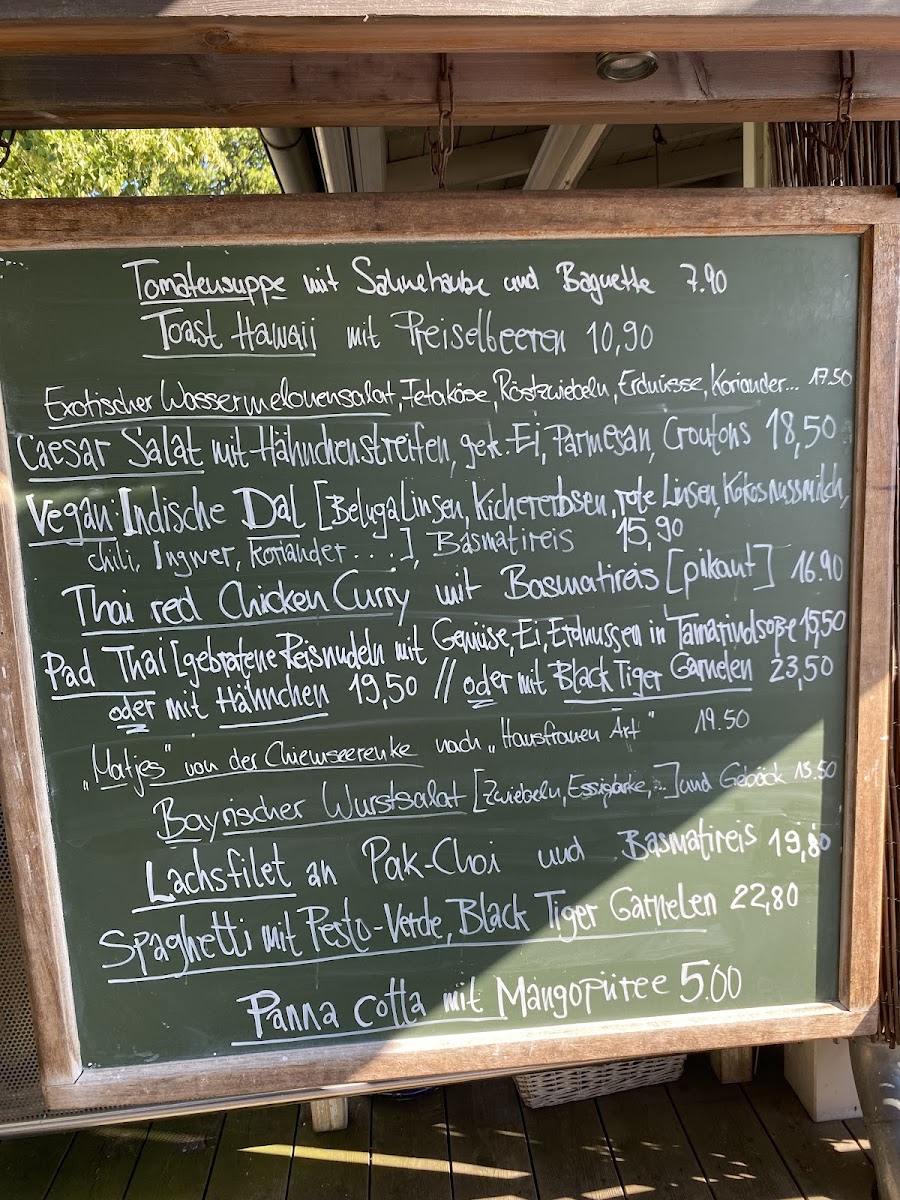 Tomatensuppe mit Sahnehaube und Baguette 7.90
Toast Hawaii mit Preiselbeeren 10,90
Exotischer Wassermelonensalat, Fetakäse, Röstzwiebeln, Erdnüsse, Koriander... 17.50
Caesar Salat mit Hähnchenstreifen, gek. Ei, Parmesan, Croutons 18,50
Vegan: Indische Dal [Beluga Linsen, Kichererbsen, rote Linsen, Kokosnussmilch,
Chili, Ingwer, Koriander....], Basmatireis 15,90
Thai red Chicken Curry mit Basmatireis [pikant] 16.90
Pad Thai [gebratene Reisnudeln mit Gemüse, Ei, Erdnussen in Tamarindsoße 15,50
oder mit Hähnchen 19,50 // oder mit Black Tiger Garnelen 23,50
„Matjes" von der Chiemseerenke nach „Hausfrauen Art" 19.50
Bayrischer Wurstsalat [Zwiebeln, Essiggurke, ..] und Gebäck 15.50
Lachsfilet an Pak-Choi und Basmatireis 19,80
Spaghetti mit Pesto-Verde, Black Tiger Garnelen 22,80
Panna cotta mit Mangopüree 5.00